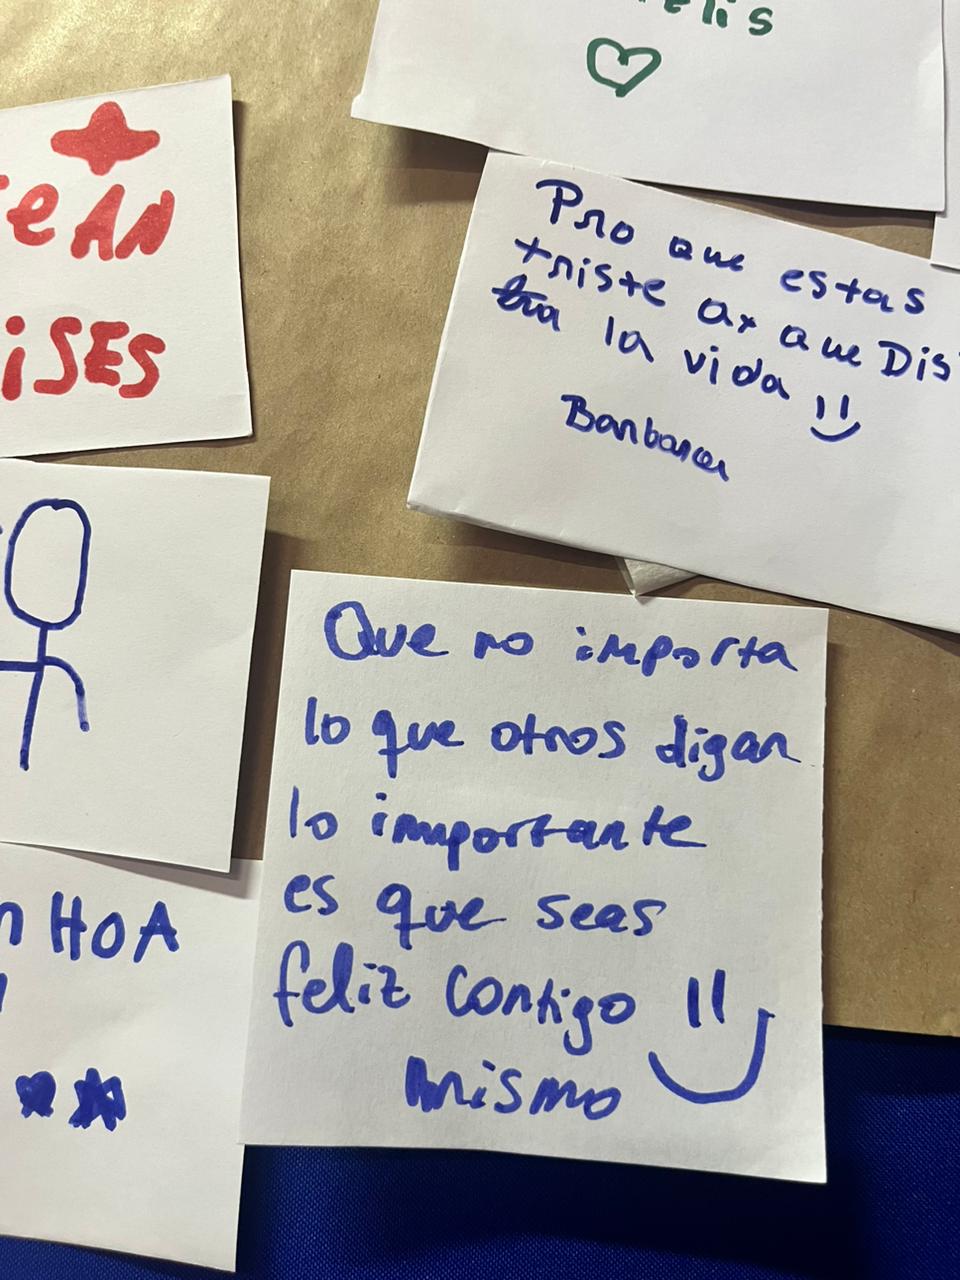 elis
eAN
iSES
Pro que estas
triste ax que Dis
la vida
Barbara
HOA
Que no importa
lo que otros digan
lo importante
es que seas
feliz contigo
mismo